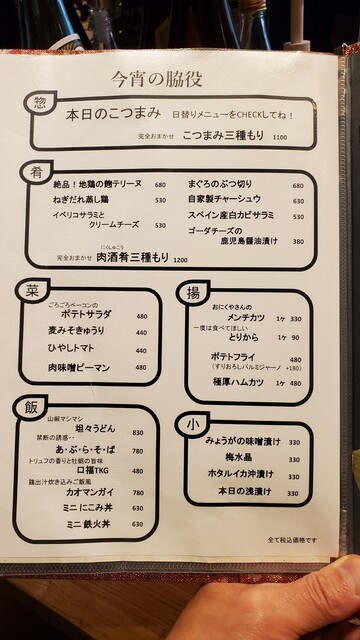 今宵の脇役
惣
本日のこつまみ 日替りメニューをCHECKしてね！
完全おまかせ こつまみ三種もり 1100
肴
絶品！地鶏の麹テリーヌ 680
ねぎだれ蒸し鶏 530
イベリコサラミと
クリームチーズ 530
まぐろのぶつ切り 680
自家製チャーシュウ 630
スペイン産白カビサラミ 530
ゴーダチーズの
鹿児島醤油漬け 380
にくしゅこう
完全おまかせ 肉酒肴三種もり 1200
菜
ごろごろベーコンの
ポテトサラダ 480
麦みそきゅうり 440
ひやしトマト 440
肉味噌ピーマン 480
揚
おにくやさんの
メンチカツ 1ケ 300
一度は食べてほしい
とりから 1ケ 90
ポテトフライ 480
(すりおろしパルミジャーノ +180)
極厚ハムカツ 1ケ 480
飯
山椒マシマシ
坦々うどん 830
禁断の誘惑‥
あ・ぶ・ら・そ・ば 780
トリュフの香りと牡蛎の旨味
口福TKG 480
鶏出汁炊き込みご飯風
カオマンガイ 780
ミニ にこみ丼 630
ミニ 鉄火丼 630
小
みょうがの味噌漬け 330
梅水晶 330
ホタルイカ沖漬け 330
本日の浅漬け 330
全て税込価格です